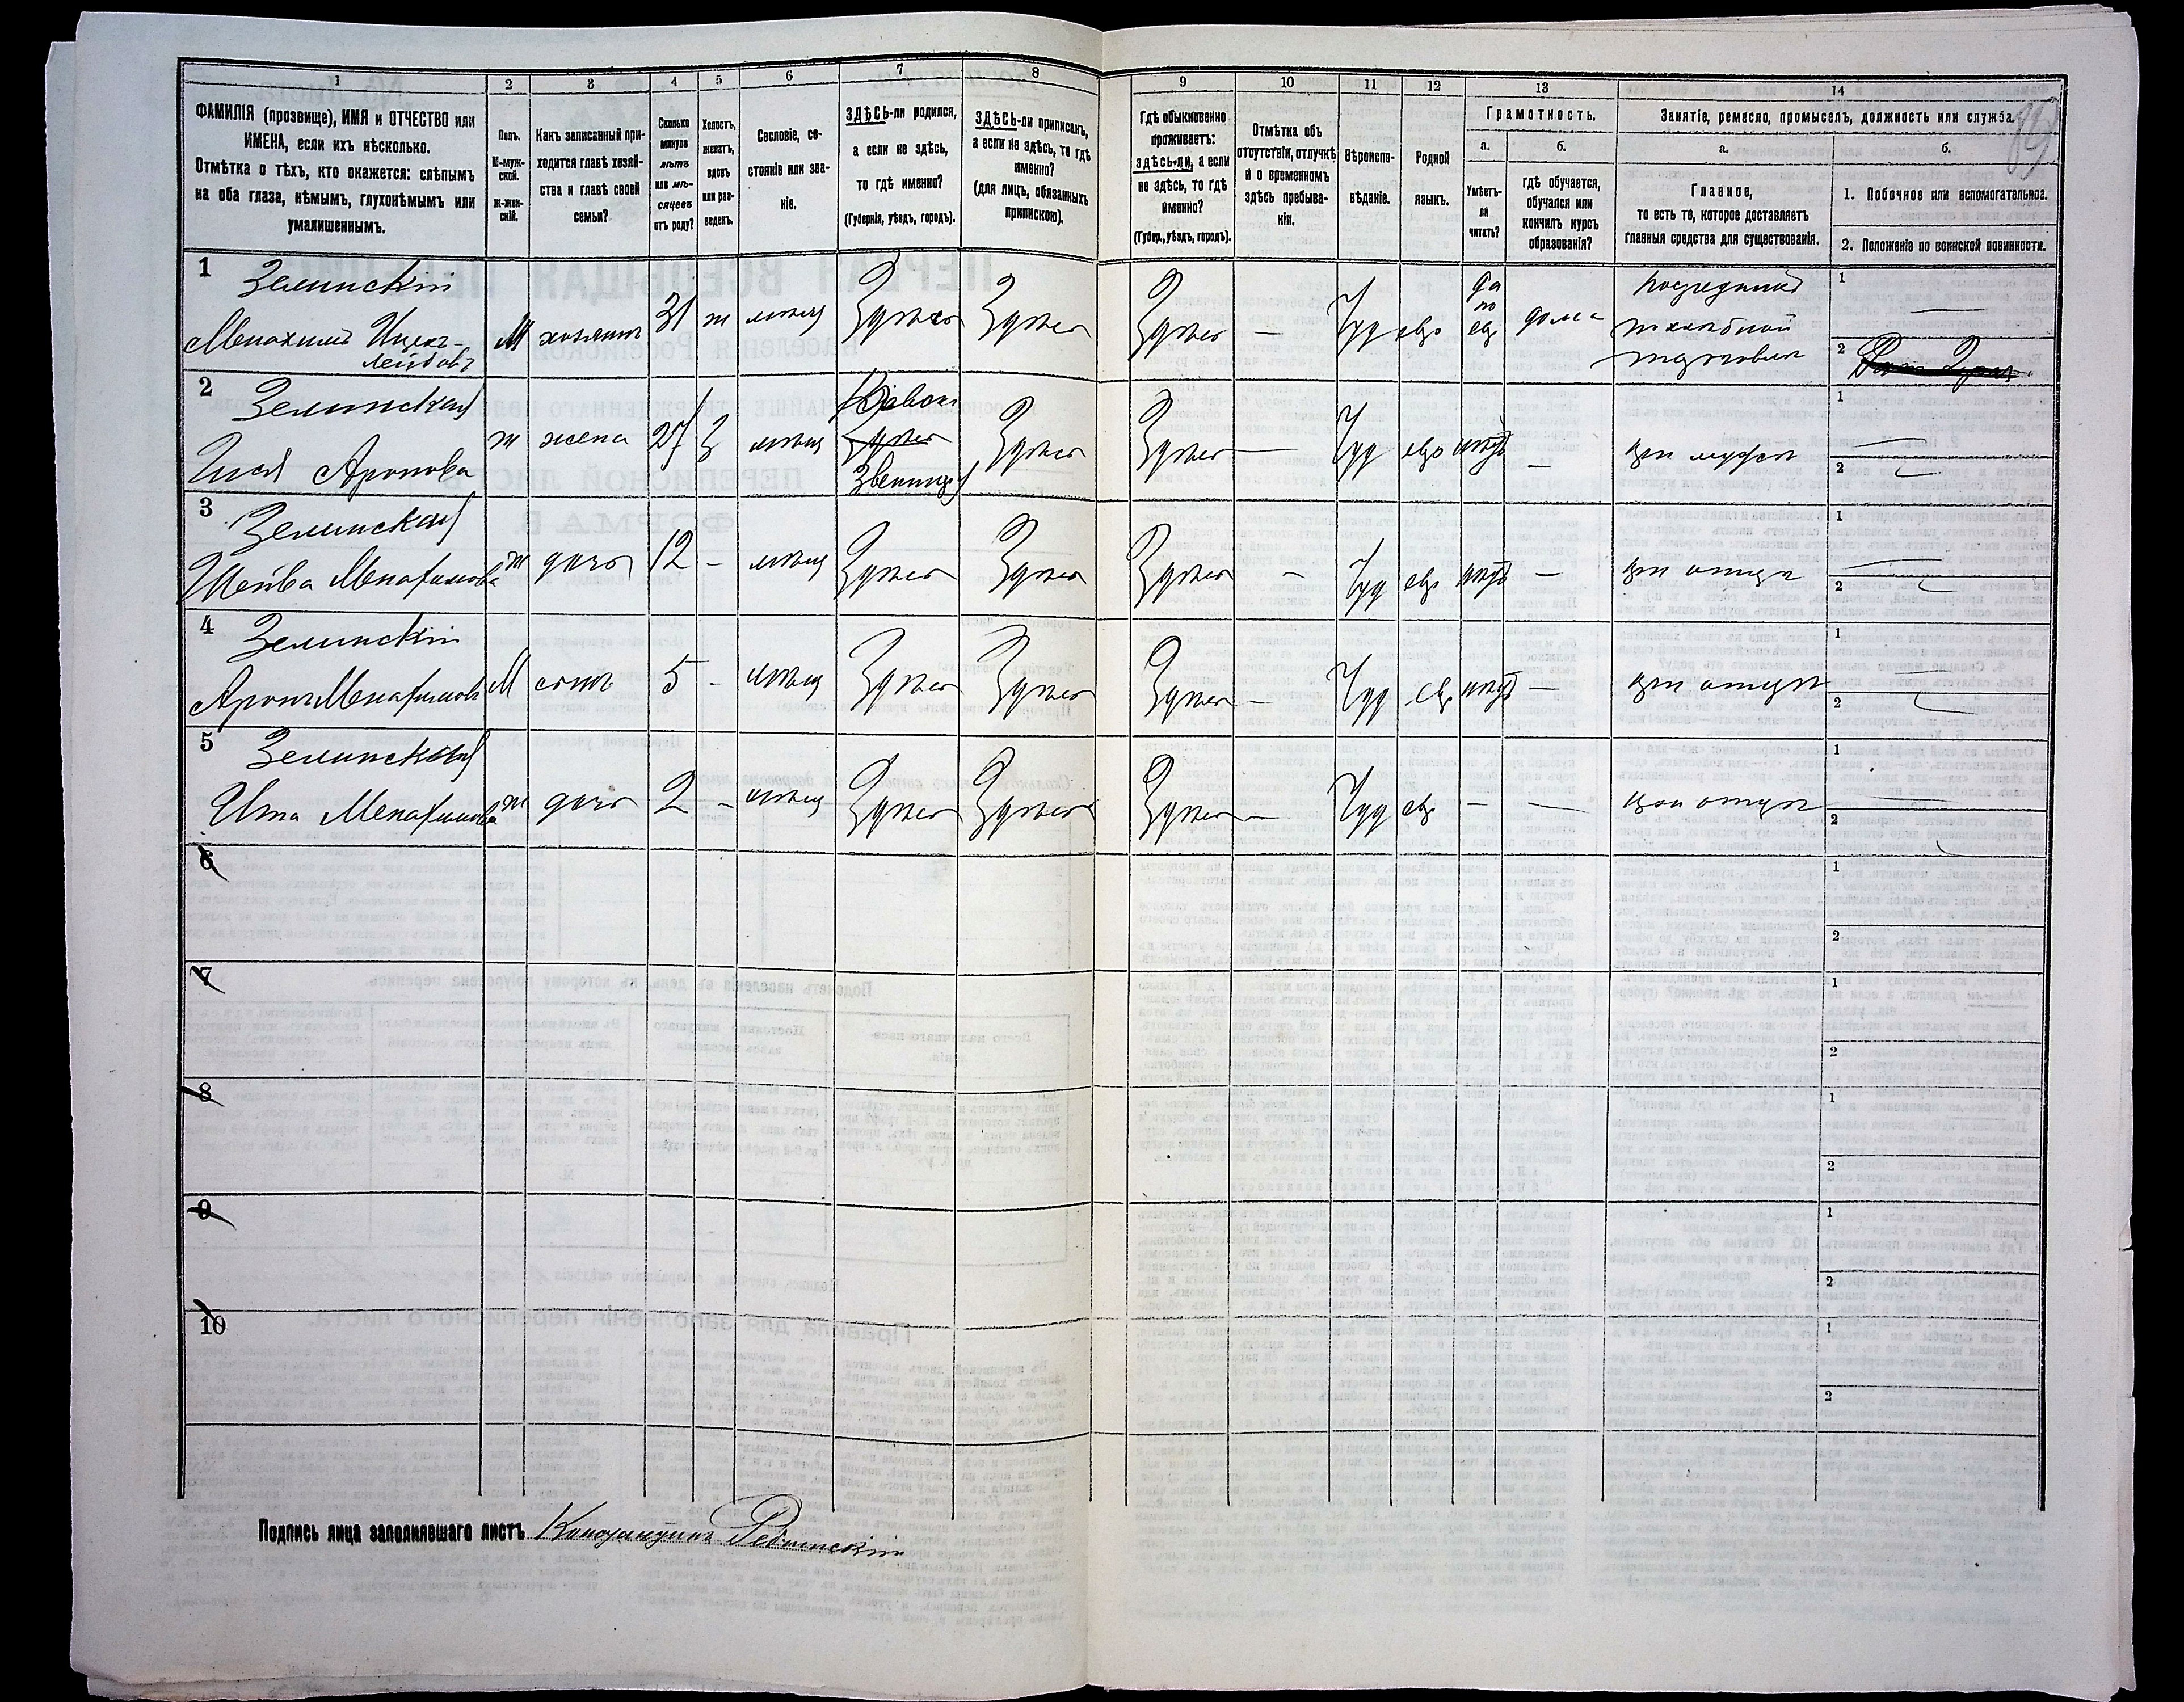 1
2
3
4
5
6
7
8
ФАМИЛІЯ (прозвище), ИМЯ и ОТЧЕСТВО или
ИМЕНА, если ихъ нѣсколько.
Отмѣтка о тѣхъ, кто окажется: слѣпымъ
на оба глаза, нѣмымъ, глухонѣмымъ или
умалишеннымъ.
Полъ.
М-муж-
ской.
Ж-жен-
скій.
Какъ записанный при-
ходится главѣ хозяй-
ства и главѣ своей
семьи?
Сколько
минуло
лѣтъ
или мѣ-
сяцевъ
отъ роду?
Холостъ,
женатъ,
вдовъ
или раз-
веденъ.
Сословіе, со-
стояніе или зва-
ніе.
ЗДѢСЬ-ли родился,
а если не здѣсь,
то гдѣ именно?
(Губернія, уѣздъ, городъ).
ЗДѢСЬ-ли приписанъ,
а если не здѣсь, то гдѣ
именно?
(для лицъ, обязанныхъ
припискою).
9
10
11
12
13
14
Гдѣ обыкновенно
проживаетъ:
здѣсь-ли, а если
не здѣсь, то гдѣ
именно?
(Губер., уѣздъ, городъ).
Отмѣтка объ
отсутствіи, отлучкѣ
и о временномъ
здѣсь пребыва-
ніи.
Вѣроиспо-
вѣданіе.
Родной
языкъ.
Грамотность.
а.
б.
Умѣетъ-
ли
читать?
гдѣ обучается,
обучался или
кончилъ курсъ
образованія?
Занятіе, ремесло, промыселъ, должность или служба.
а.
б.
Главное,
то есть то, которое доставляетъ
главныя средства для существованія.
1. Побочное или вспомогательное.
2. Положеніе по воинской повинности.
89
1
Зелинскій
Менахимъ Ицекъ-
Лейбовъ
М хозяинъ 31 ж мѣщ Здѣсь Здѣсь
Здѣсь — Іуд евр да по евр дома
Посредникъ
хлѣбной
торговли
1 —
2
2
Зелинская
Аронова
ж жена 27 З мѣщ Кіевск Здѣсь Звениг Здѣсь
Здѣсь — Іуд евр нѣтъ — при мужѣ
1 —
2 —
3
Зелинская
Шейва Менахимова
ж дочь 12 - мѣщ Здѣсь Здѣсь
Здѣсь — Іуд евр нѣтъ — при отцѣ
1 —
2 —
4
Зелинскій
Аронъ Менахимовъ
М сынъ 5 - мѣщ Здѣсь Здѣсь
Здѣсь — Іуд евр нѣтъ — при отцѣ
1 —
2 —
5
Зелинская
Ита Менахимова
ж дочь 2 - мѣщ Здѣсь Здѣсь
Здѣсь — Іуд евр — — при отцѣ
1 —
2 —
6
1
2
7
1
2
8
1
2
9
1
2
10
1
2
Подпись лица заполнявшаго листъ